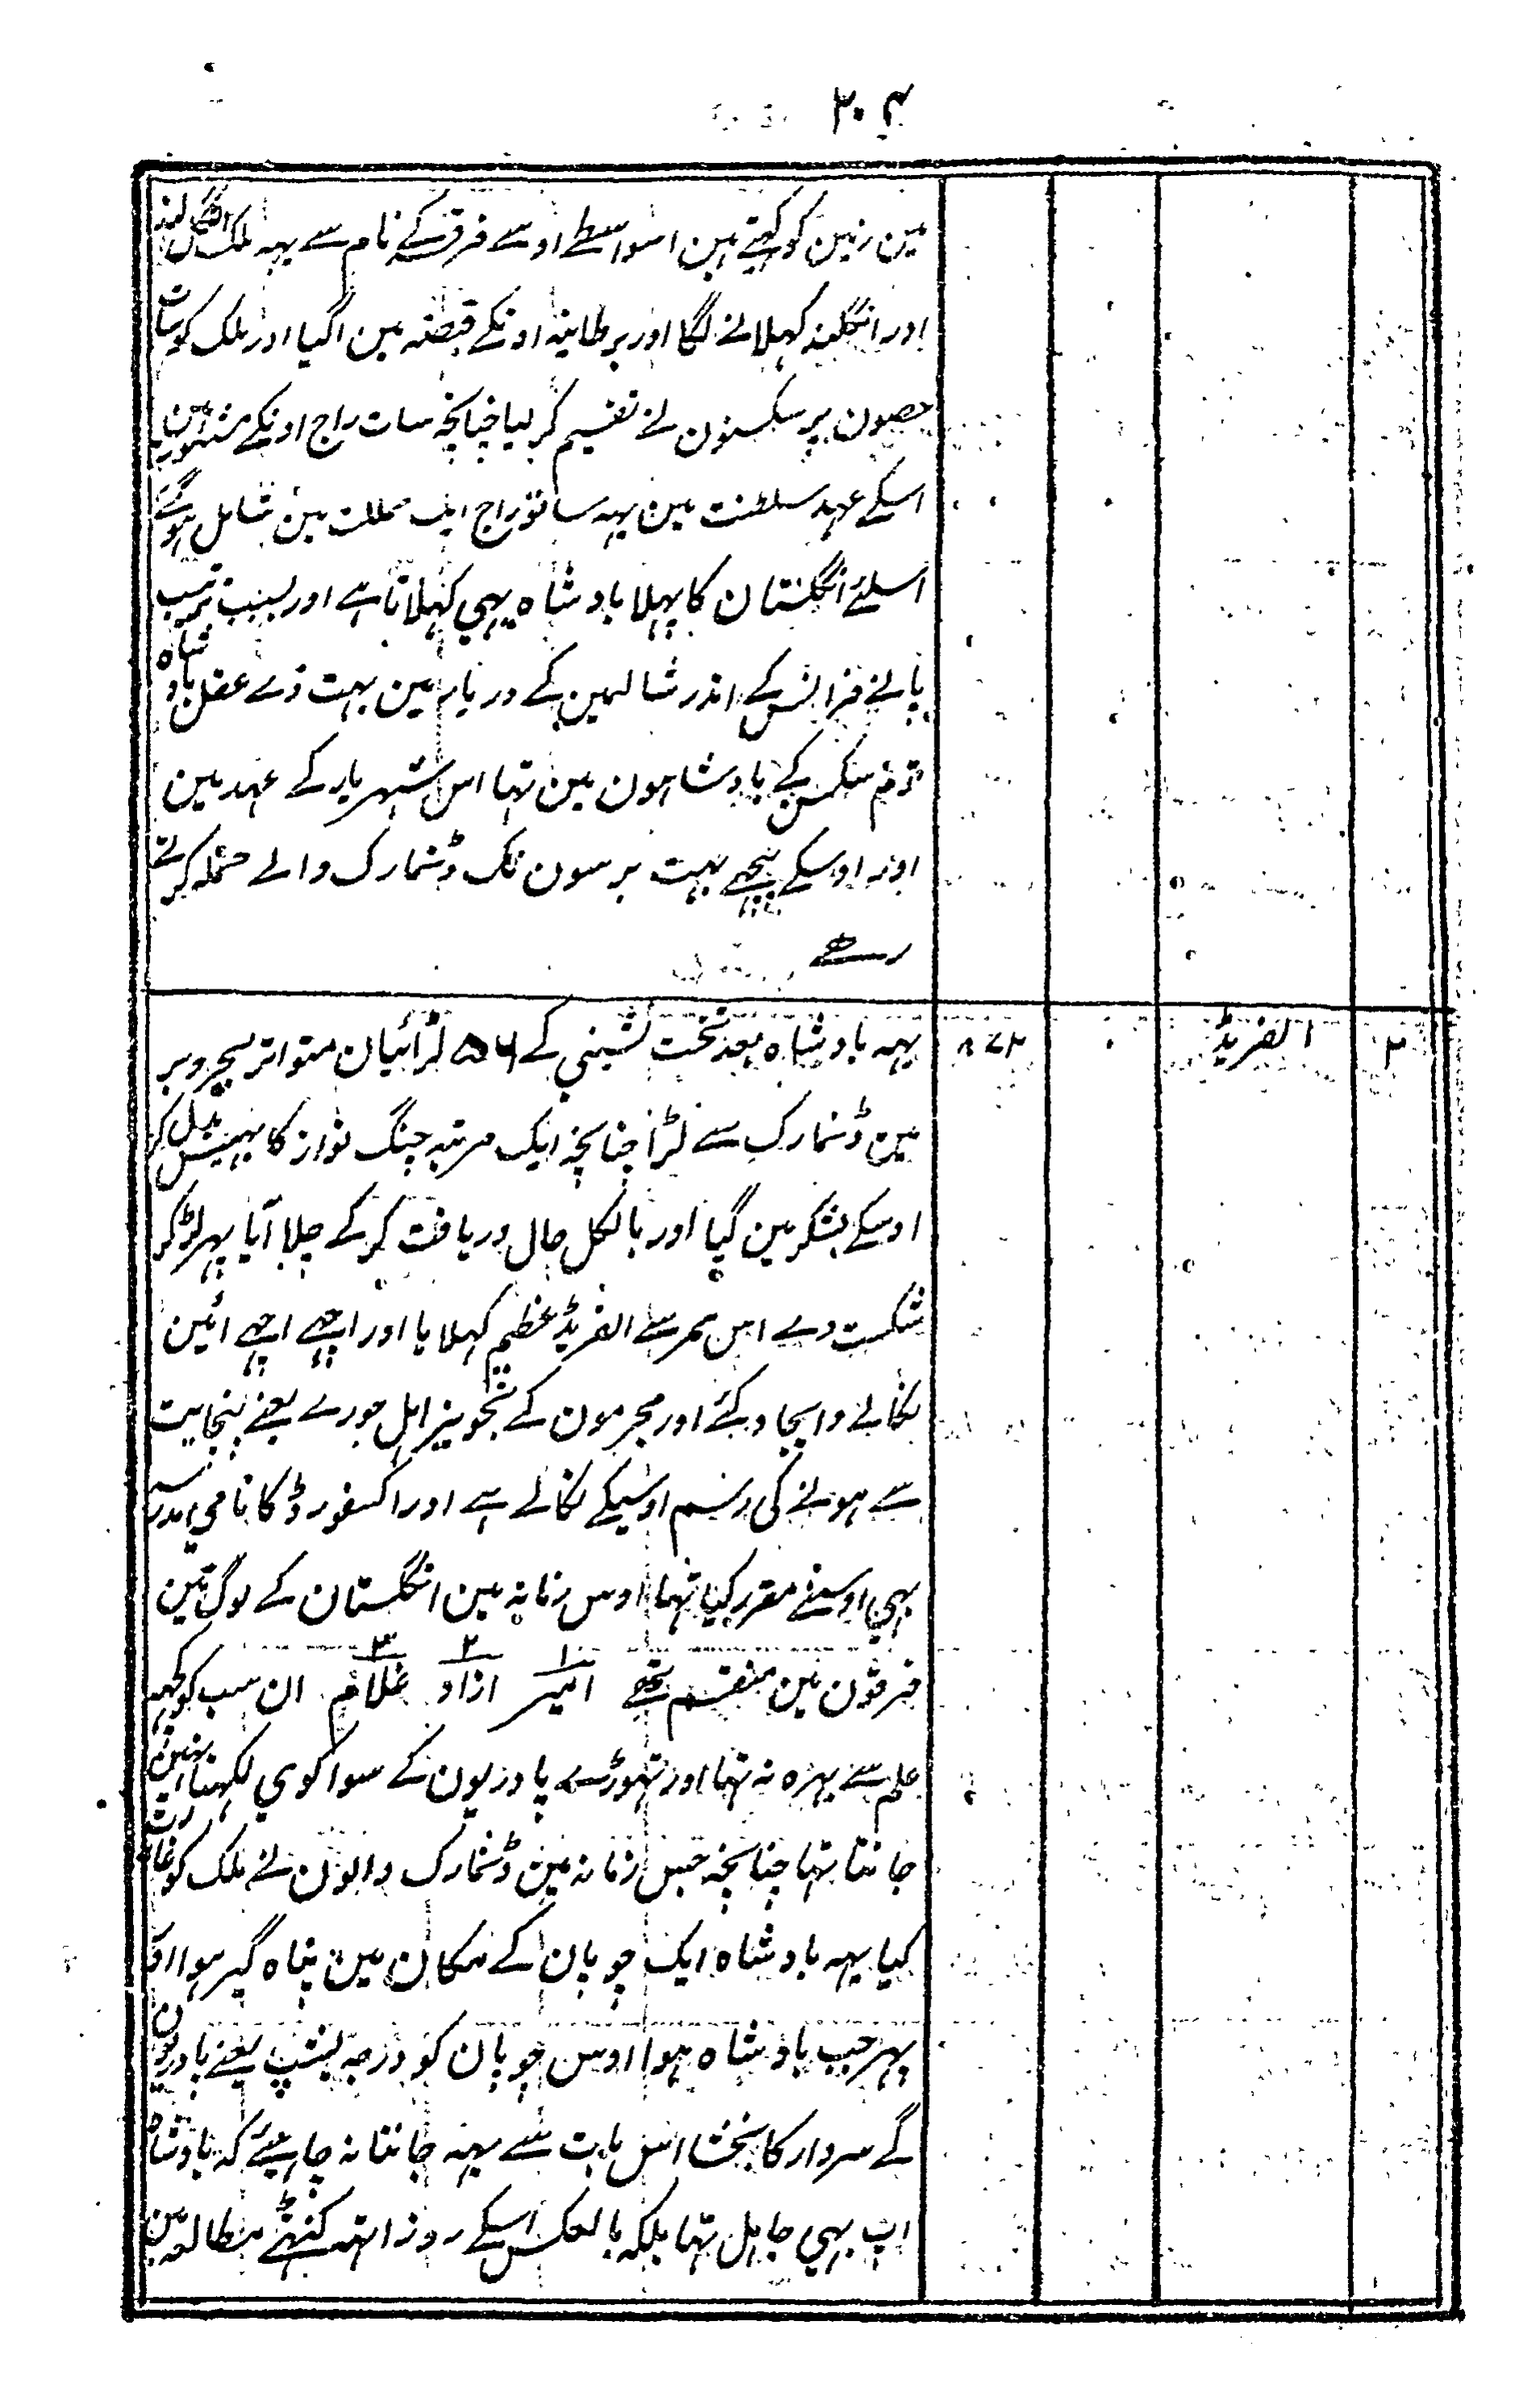 ۲۰۴
مین زمین کو کہتے ہین اسواسطے اوسے فرقے کے نام سے یہہ ملک انگل لینڈ
اور انگلینڈ کہلانے لگا اور برطانیہ اونکے قبضہ مین اگیا اور ملک کو سات
حصون پر سکسنون نے تقسیم کر لیا چنانچہ سات راج اونکے مشہور ہین
اسکے عہد سلطنت مین یہہ ساتو راج ایک مملکت مین شامل ہوگئے
اسلئے انگلستان کا پہلا بادشاہ یہی کہلاتا ہے اور بسبب تربیت
پانے فرانس کے اندر شالیمین کے دربار مین بہت ذے عقل بادشاہ
قوم سکسن کے بادشاہون مین تہا اس شہریار کے عہد مین
اور اوسکے پیچھے بہت برسون تک ڈنمارک والے حملہ کرتے
رہے
۲ الفریڈ ۰ ۸۷۲ یہہ بادشاہ بعد تخت نشینی کے ۵۶ لڑائیان متواتر بحر و بر
مین ڈنمارک سے لڑا چنانچہ ایک مرتبہ چنگ نواز کا بہیس بدل کر
اوسکے لشکر مین گیا اور بالکل حال دریافت کر کے چلا آیا پہر لڑ کر
شکست دے اس مر سے الفریڈ عظیم کہلایا اور اچہے اچہے ائین
نکالے و ایجاد کئے اور مجرمون کے تجویز اہل جورے یعنے پنچایت
سے ہونے کی رسم اوسیکے نکالے ہے اور اکسفورڈ کا نامی مدرسہ
بہی اوسنے مقرر کیا تہا اوس زمانہ مین انگلستان کے لوگ تین
فرقون مین منقسم تہے ۱ امیر ۲ ازاد ۳ غلام ان سب کو کچہہ
علم سے بہرہ نہ تہا اور تہوڑے پادریون کے سوا کوی لکہنا نہین
جانتا تہا چنانچہ جس زمانہ مین ڈنمارک والون نے ملک کو غارت
کیا یہہ بادشاہ ایک چوپان کے مکان مین پناہ گیر ہوا اور
پہر جب بادشاہ ہوا اوس چوپان کو درجہ بشپ یعنے پادریون
کے سردار کا بخشا اس بات سے یہہ جاننا نہ چاہیئے کہ بادشاہ
اپ بہی جاہل تہا بلکہ بالعکس اسکے روز اتہہ گہنٹے مطالعہ مین